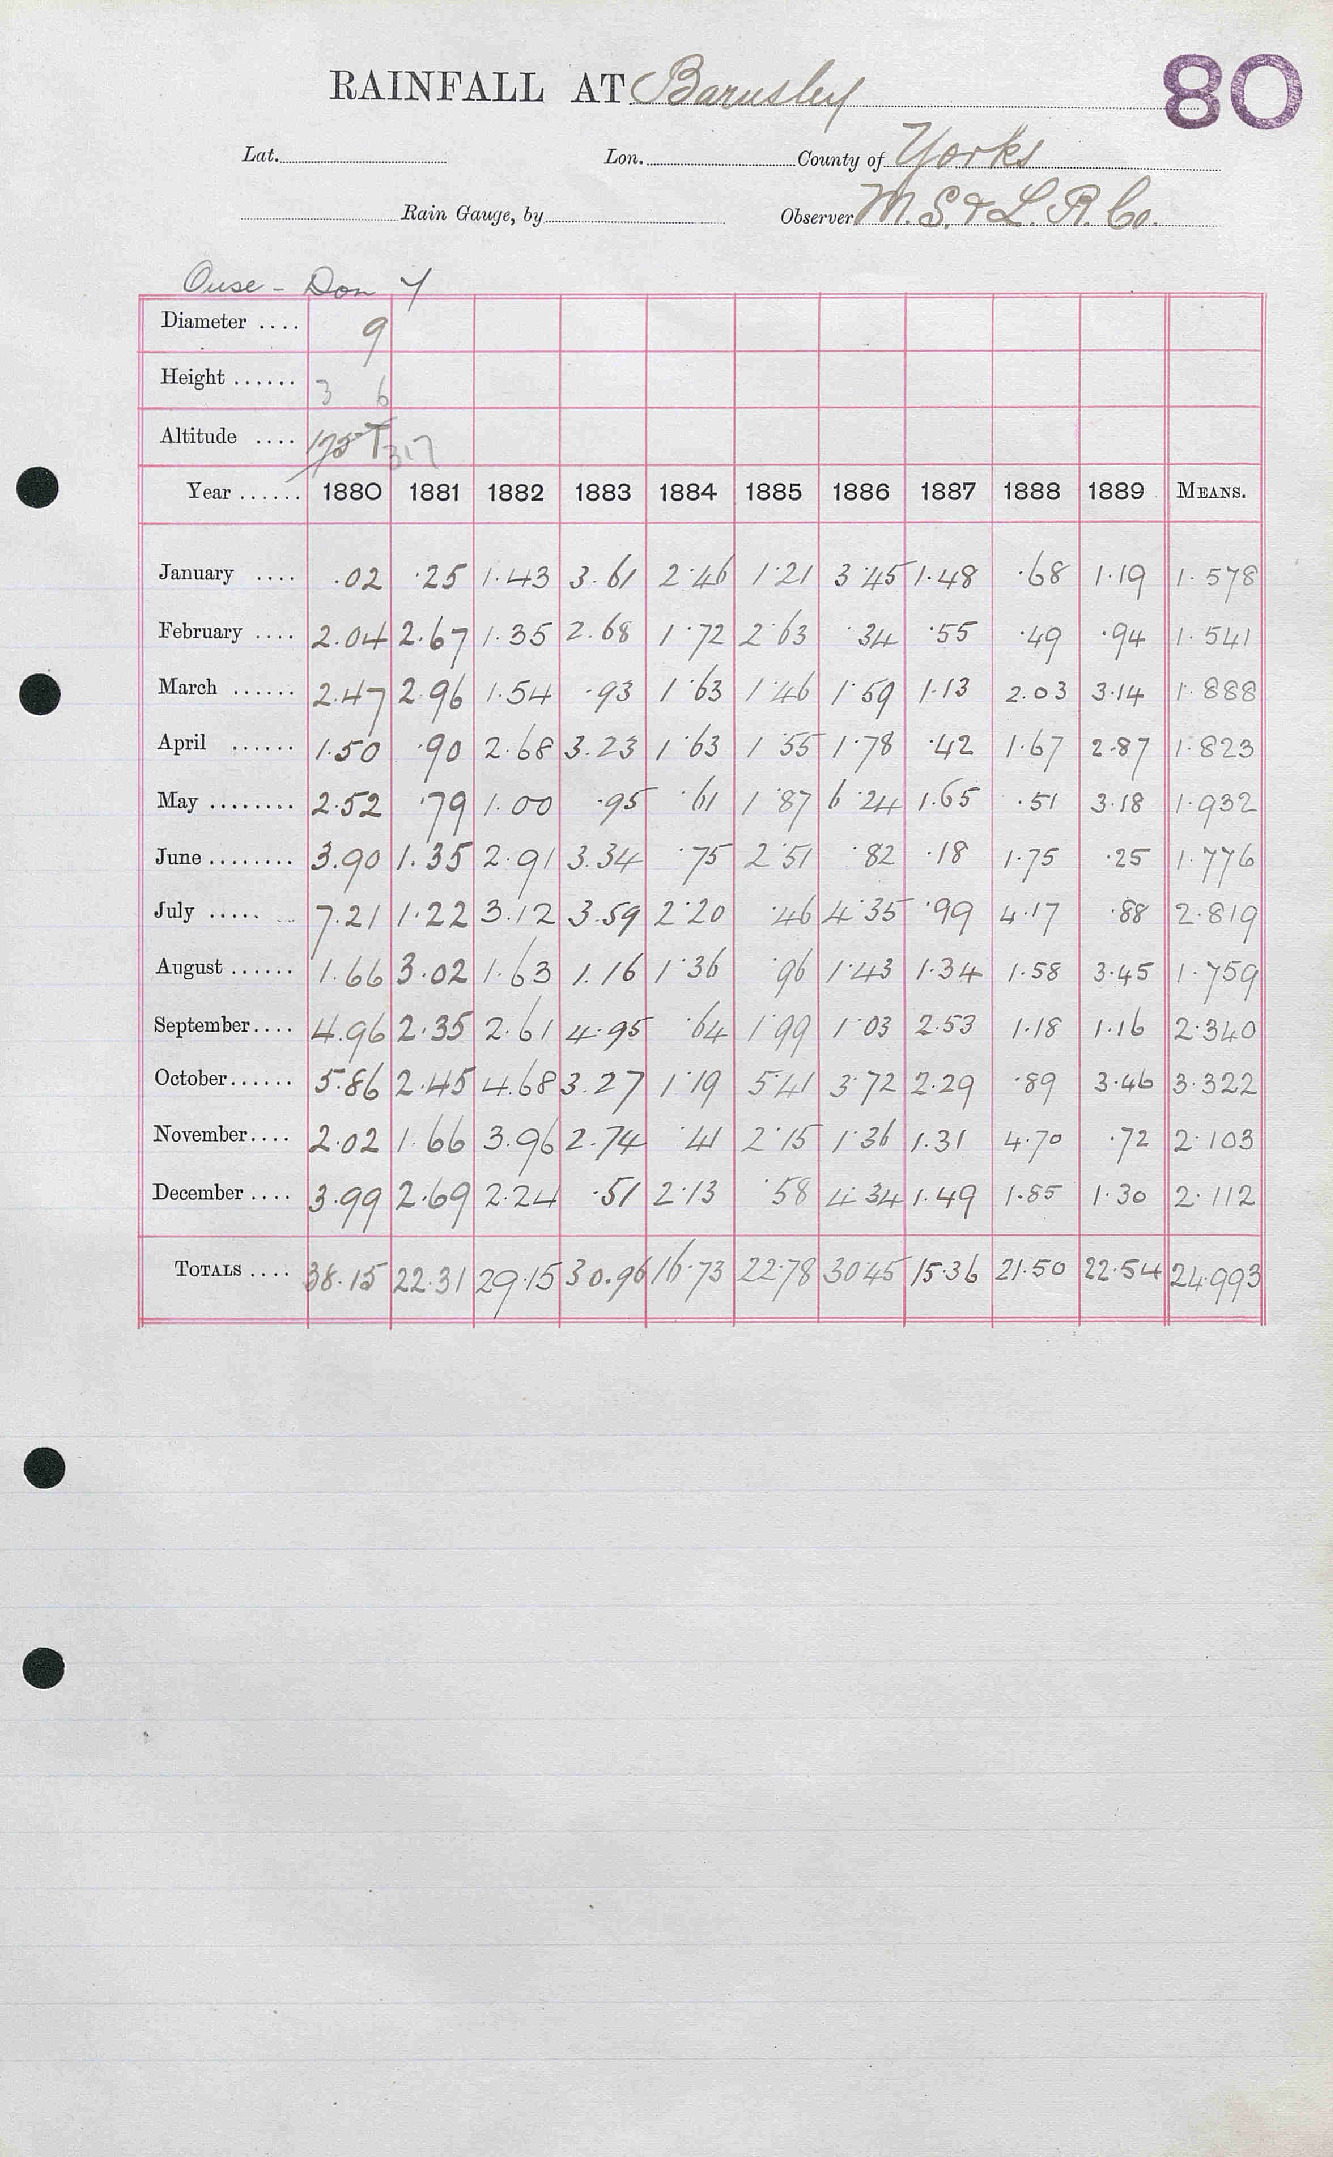 RAINFALL AT Barnsley 80
Lat. Lon. County of Yorks
Rain Gauge, by Observer M. S. & L. R. Co.
Ouse - Don Y
Diameter .... 9
Height ...... 3 6
Altitude .... 175 T 317
Year ...... 1880 1881 1882 1883 1884 1885 1886 1887 1888 1889 MEANS.
January .... .02 .25 1.43 3.61 2.46 1.21 3.45 1.48 .68 1.19 1.578
February .... 2.04 2.67 1.35 2.68 1.72 2.63 .34 .55 .49 .94 1.541
March ...... 2.47 2.96 1.54 .93 1.63 1.46 1.59 1.13 2.03 3.14 1.888
April ...... 1.50 .90 2.68 3.23 1.63 1.55 1.78 .42 1.67 2.87 1.823
May ........ 2.52 .79 1.00 .95 .61 1.87 6.24 1.65 .51 3.18 1.932
June ........ 3.90 1.35 2.91 3.34 .75 2.51 .82 .18 1.75 .25 1.776
July ..... .. 7.21 1.22 3.12 3.59 2.20 .46 4.35 .99 4.17 .88 2.819
August ...... 1.66 3.02 1.63 1.16 1.36 .96 1.43 1.34 1.58 3.45 1.759
September.... 4.96 2.35 2.61 4.95 .64 1.99 1.03 2.53 1.18 1.16 2.340
October...... 5.86 2.45 4.68 3.27 1.19 5.41 3.72 2.29 .89 3.46 3.322
November.... 2.02 1.66 3.96 2.74 .41 2.15 1.36 1.31 4.70 .72 2.103
December .... 3.99 2.69 2.24 .51 2.13 .58 4.34 1.49 1.85 1.30 2.112
TOTALS .... 38.15 22.31 29.15 30.96 16.73 22.78 30.45 15.36 21.50 22.54 24.993